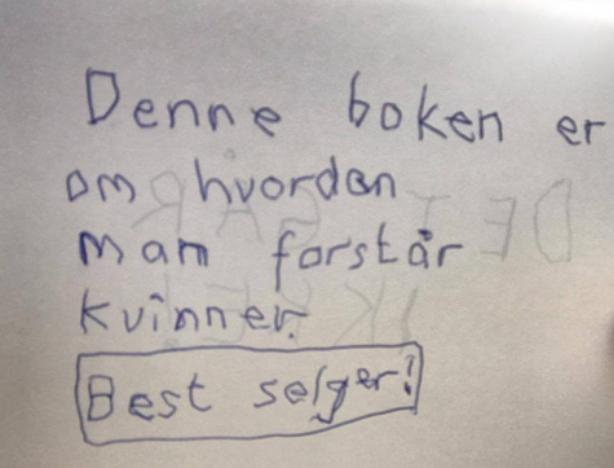 Denne boken er
om hvordan
man forstår
kvinner.
Best selger!